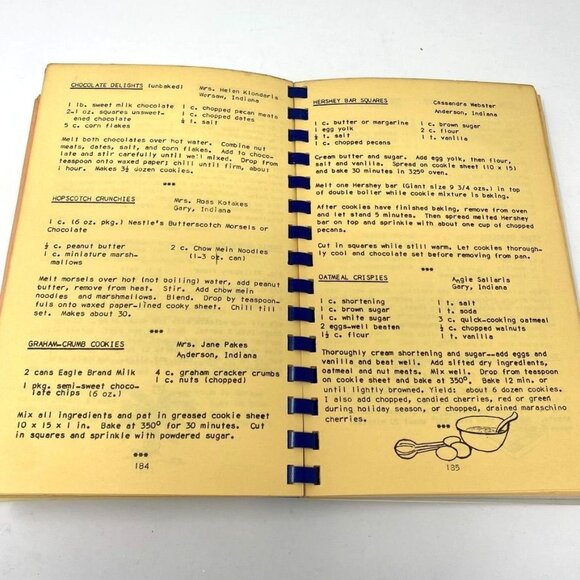 CHOCOLATE DELIGHTS (unbaked) Mrs. Helen Klondaris
Warsaw, Indiana
1 lb. sweet milk chocolate 1 c. chopped pecan meats
2-1 oz. squares unsweet- 1 c. chopped dates
ened chocolate ¼ t. salt
5 c. corn flakes
Melt both chocolates over hot water. Combine nut
meats, dates, salt, and corn flakes. Add to choco-
late and stir carefully until well mixed. Drop from
teaspoon onto waxed paper; chill until firm, about
1 hour. Makes 3½ dozen cookies.
***
HOPSCOTCH CRUNCHIES Mrs. Ross Kotakes
Gary, Indiana
1 c. (6 oz. pkg.) Nestle's Butterscotch Morsels or
Chocolate
½ c. peanut butter 2 c. Chow Mein Noodles
1 c. miniature marsh- (1-3 oz. can)
mallows
Melt morsels over hot (not boiling) water, add peanut
butter, remove from heat. Stir. Add chow mein
noodles and marshmallows. Blend. Drop by teaspoon-
fuls onto waxed paper-lined cooky sheet. Chill till
set. Makes about 30.
***
GRAHAM-CRUMB COOKIES Mrs. Jane Pakes
Anderson, Indiana
2 cans Eagle Brand Milk 4 c. graham cracker crumbs
1 pkg. semi-sweet choco- 1 c. nuts (chopped)
late chips (6 oz.)
Mix all ingredients and pat in greased cookie sheet
10 x 15 x 1 in. Bake at 350° for 30 minutes. Cut
in squares and sprinkle with powdered sugar.
***
184
HERSHEY BAR SQUARES Cassandra Webster
Anderson, Indiana
1 c. butter or margerine 1 c. brown sugar
1 egg yolk 2 c. flour
1 c. chopped pecans 1 t. vanilla
Cream butter and sugar. Add egg yolk, then flour,
salt and vanilla. Spread on cookie sheet (10 x 15)
and bake 30 minutes in 325° oven.
Melt one Hershey bar (Giant size 9 3/4 ozs.) in top
of double boiler while cookie mixture is baking.
After cookies have finished baking, remove from oven
and let stand 5 minutes. Then spread melted Hershey
bar on top and sprinkle with about one cup of chopped
pecans.
Cut in squares while still warm. Let cookies thorough-
ly cool and chocolate set before removing from pan.
***
OATMEAL CRISPIES Angie Sallaris
Gary, Indiana
1 c. shortening 1 t. salt
1 c. brown sugar 1 t. soda
1 c. white sugar 3 c. quick-cooking oatmeal
2 eggs-well beaten ½ c. chopped walnuts
1½ c. flour 1 t. vanilla
Thoroughly cream shortening and sugar—add eggs and
vanilla and beat well. Add sifted dry ingredients,
oatmeal and nut meats. Mix well. Drop from teaspoon
on cookie sheet and bake at 350°. Bake 12 min. or
until lightly browned. Yield: about 6 dozen cookies.
I also add chopped, candied cherries, red or green
during holiday season, or chopped, drained maraschino
cherries.
185